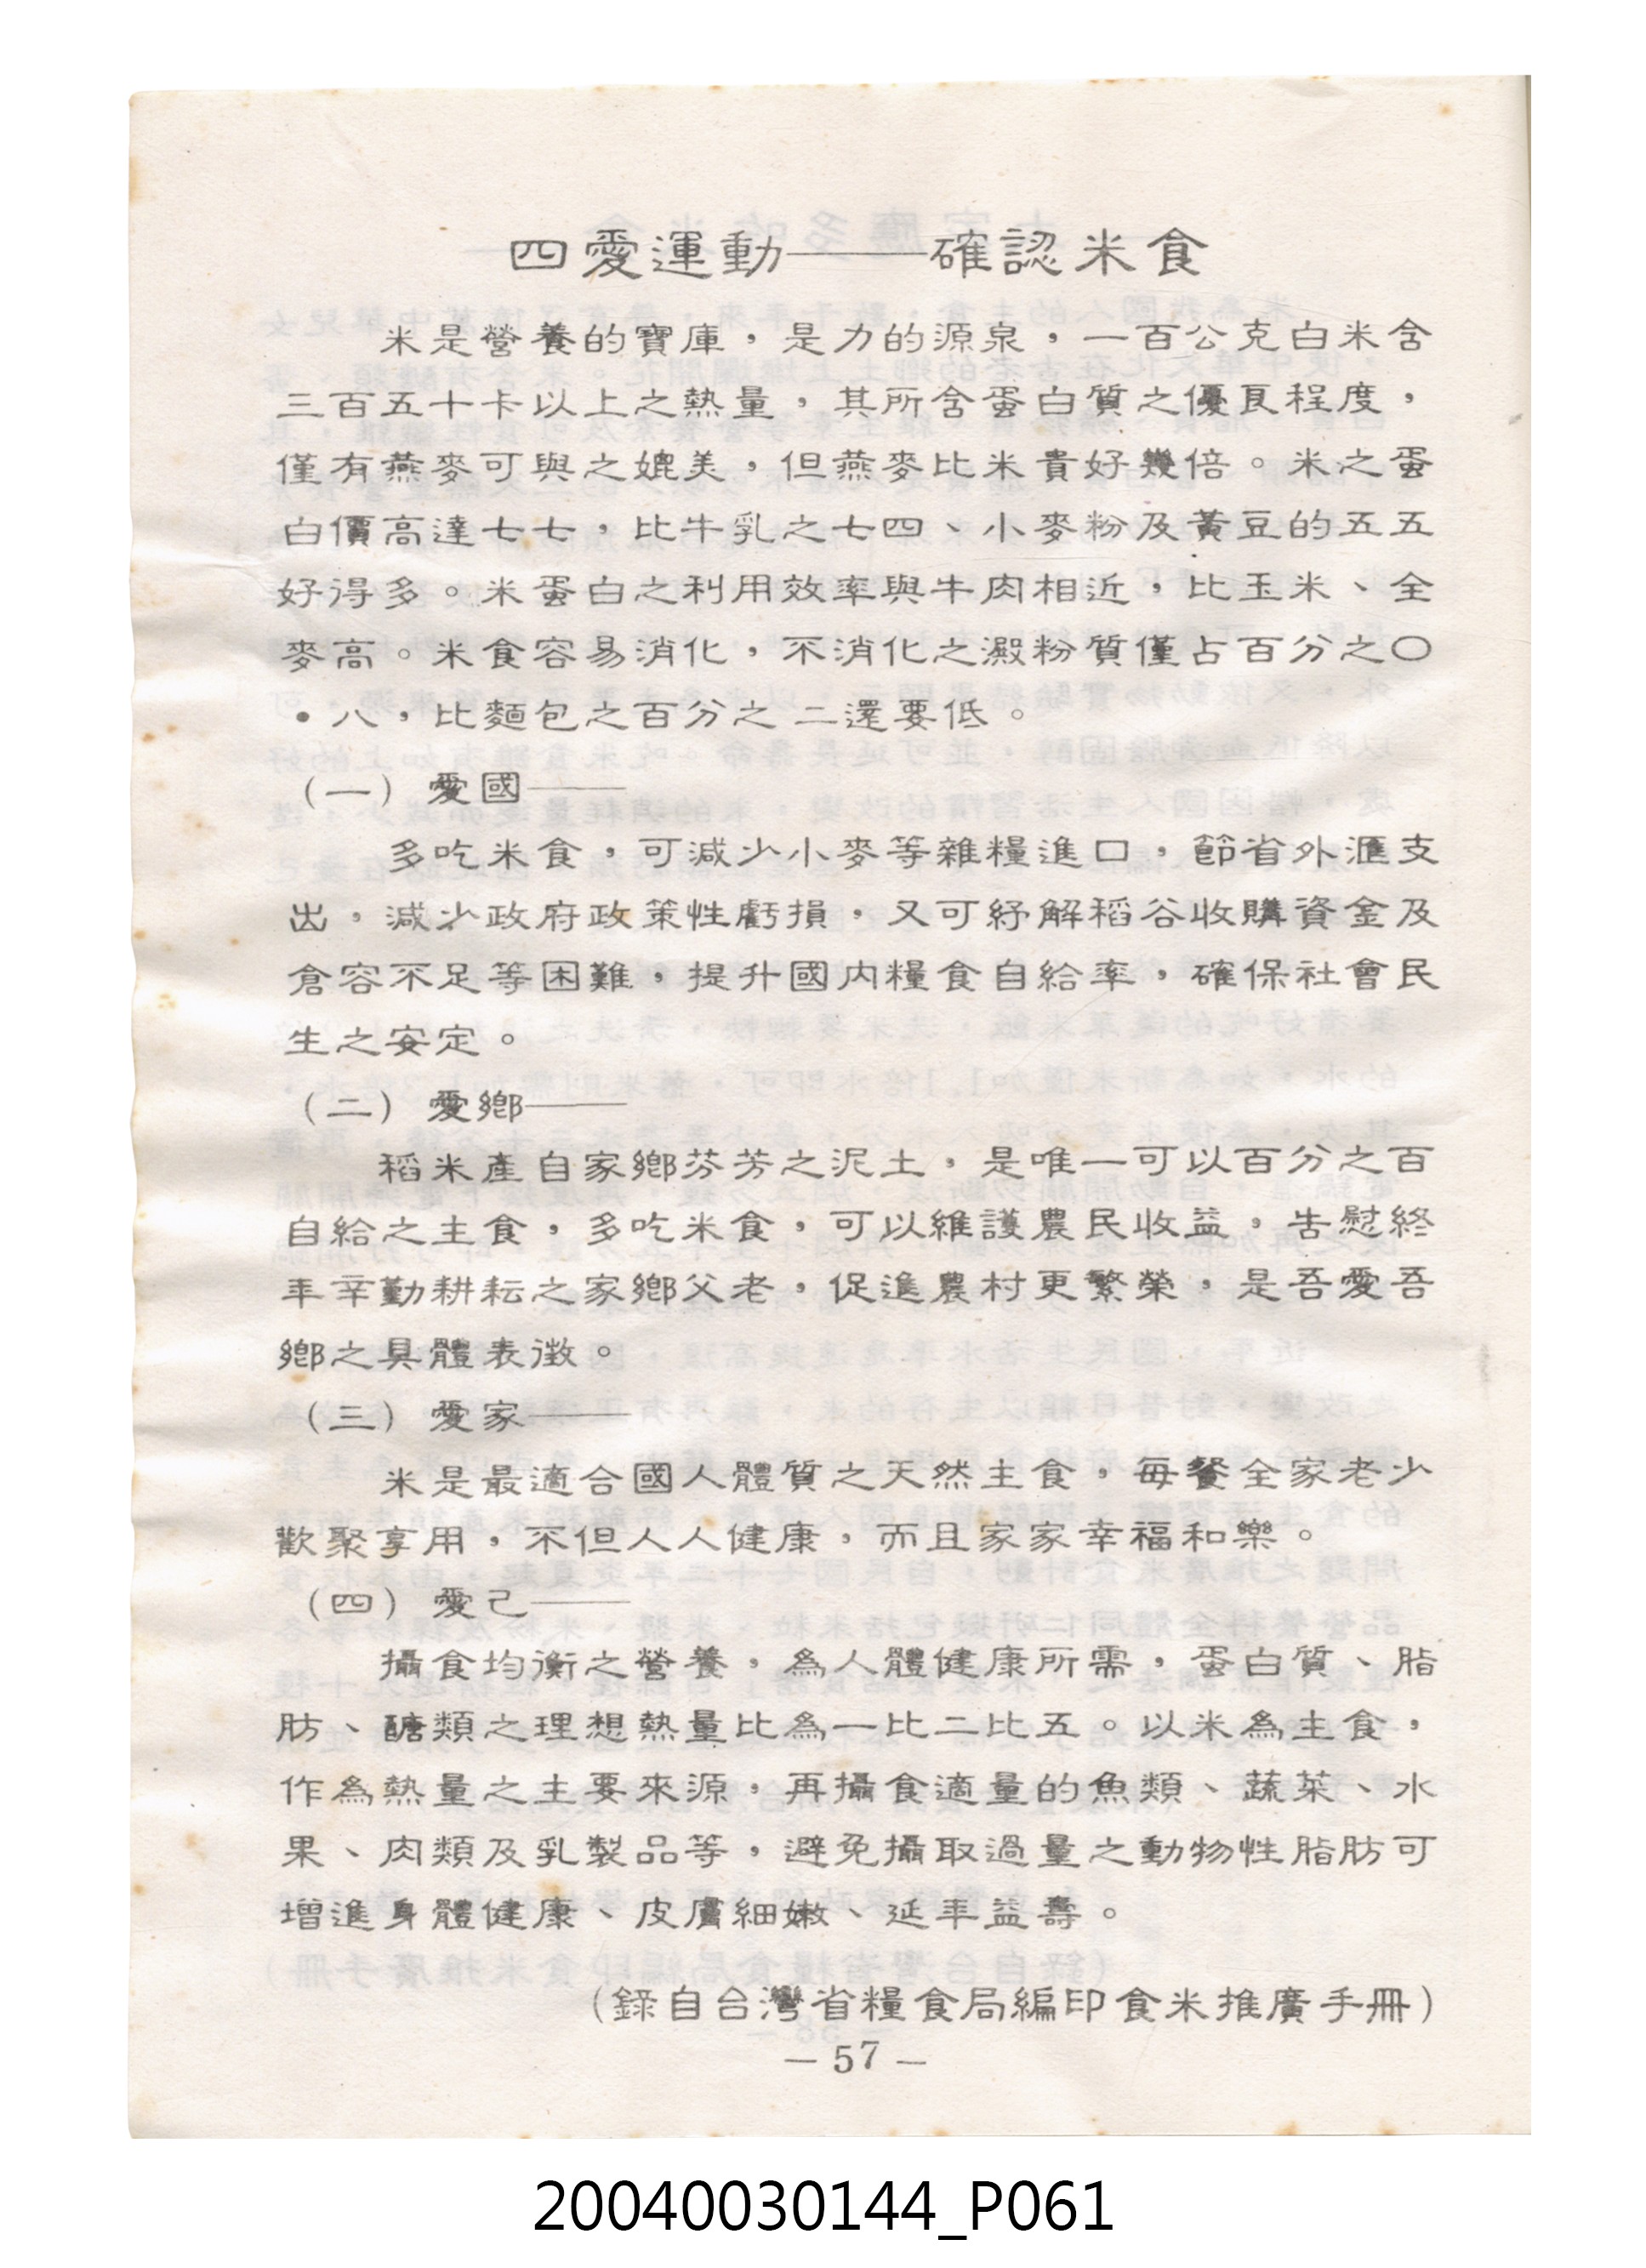 四愛運動——確認米食
米是營養的寶庫，是力的源泉，一百公克白米含
三百五十卡以上之熱量，其所含蛋白質之優良程度，
僅有燕麥可與之媲美，但燕麥比米貴好幾倍。米之蛋
白價高達七七，比牛乳之七四、小麥粉及黃豆的五五
好得多。米蛋白之利用效率與牛肉相近，比玉米、全
麥高。米食容易消化，不消化之澱粉質僅占百分之〇
•八，比麵包之百分之二還要低。
（一）愛國——
多吃米食，可減少小麥等雜糧進口，節省外滙支
出，減少政府政策性虧損，又可紓解稻谷收購資金及
倉容不足等困難，提升國内糧食自給率，確保社會民
生之安定。
（二）愛鄉——
稻米產自家鄉芬芳之泥土，是唯一可以百分之百
自給之主食，多吃米食，可以維護農民收益，告慰終
年辛勤耕耘之家鄉父老，促進農村更繁榮，是吾愛吾
鄉之具體表徵。
（三）愛家——
米是最適合國人體質之天然主食，每餐全家老少
歡聚享用，不但人人健康，而且家家幸福和樂。
（四）愛己——
攝食均衡之營養，為人體健康所需，蛋白質、脂
肪、醣類之理想熱量比為一比二比五。以米為主食，
作為熱量之主要來源，再攝食適量的魚類、蔬菜、水
果、肉類及乳製品等，避免攝取過量之動物性脂肪可
增進身體健康、皮膚細嫩、延年益壽。
（錄自台灣省糧食局編印食米推廣手冊）
— 57 —
20040030144_P061